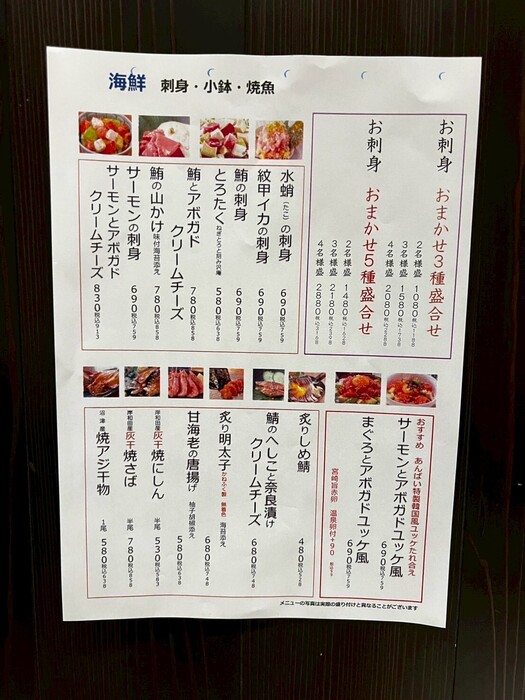 海鮮 刺身・小鉢・焼魚
お刺身 おまかせ3種盛合せ
2名様盛 1080税込1188
3名様盛 1580税込1738
4名様盛 2080税込2288
お刺身 おまかせ5種盛合せ
2名様盛 1480税込1628
3名様盛 2180税込2398
4名様盛 2880税込3168
水蛸(たこ)の刺身 690税込759
紋甲イカの刺身 690税込759
鮪の刺身 690税込759
とろたく ねぎとろと刻み沢庵 580税込638
鮪とアボガド
クリームチーズ 780税込858
鮪の山かけ 味付海苔添え 780税込858
サーモンの刺身 690税込759
サーモンとアボガド
クリームチーズ 830税込913
おすすめ あんばい特製韓国風ユッケたれ合え
サーモンとアボガドユッケ風
690税込759
まぐろとアボガドユッケ風
690税込759
宮崎旨赤卵 温泉卵付+90
炙りしめ鯖 480税込528
鯖のへしこと奈良漬け
クリームチーズ 680税込748
炙り明太子 かねふく製 無着色 海苔添え 680税込748
甘海老の唐揚げ 柚子胡椒添え 580税込638
岸和田産 灰干焼にしん 半尾 530税込583
岸和田産 灰干焼さば 半尾 780税込858
沼津産 焼アジ干物 1尾 580税込638
メニューの写真は実際の盛り付けと異なることがございます